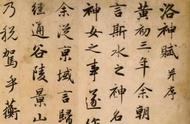 洛神賦 并序
黄初三年余朝
言斯水之神名
神女之事遂作
余從京域言歸
經通谷陵景山
乃税駕乎蘅